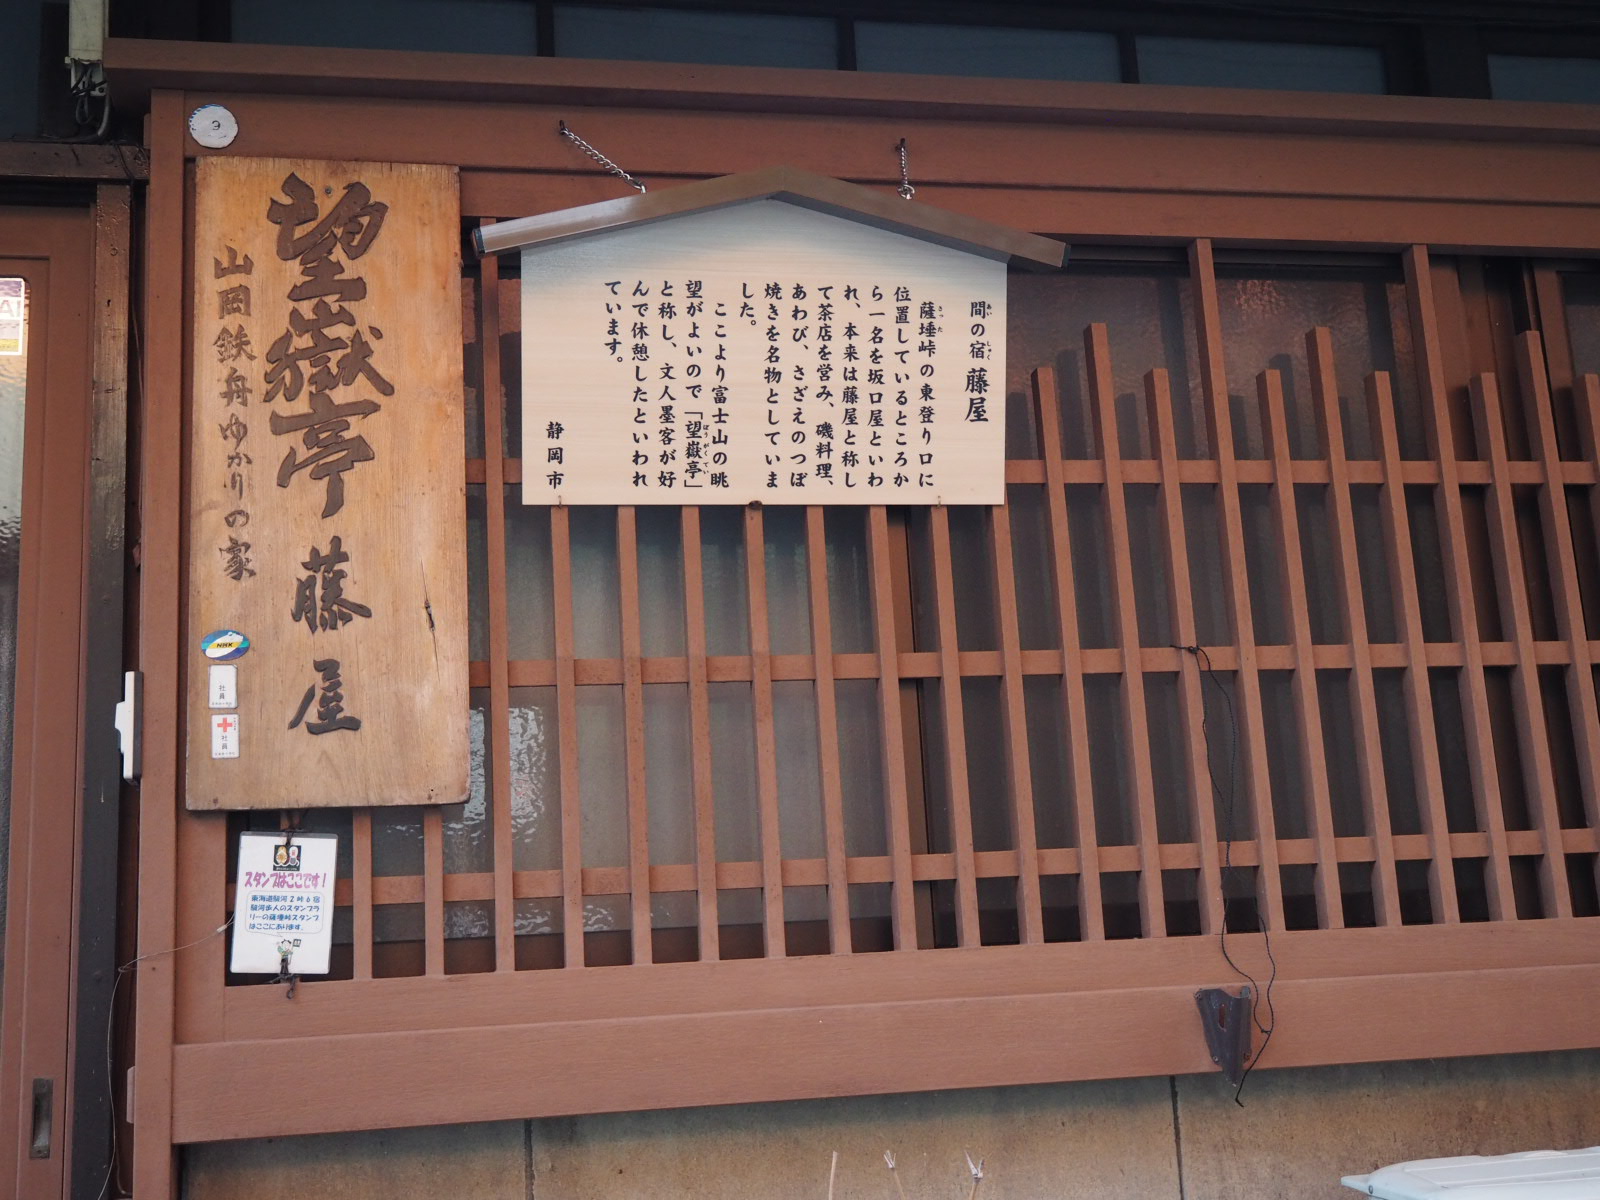 望嶽亭 藤屋
山岡鉄舟ゆかりの家
間の宿 藤屋
あい しゅく
薩埵峠の東登り口に
さった
位置しているところか
ら一名を坂口屋といわ
れ、本来は藤屋と称し
て茶店を営み、磯料理、
あわび、さざえのつぼ
焼きを名物としていま
した。
ここより富士山の眺
望がよいので「望嶽亭」
ぼうがくてい
と称し、文人墨客が好
んで休憩したといわれ
ています。
静岡市
NHK
社員
社員
スタンプはここです!
東海道駿河2峠6宿
駿河歩人のスタンプラ
リーの薩埵峠スタンプ
はここにあります。